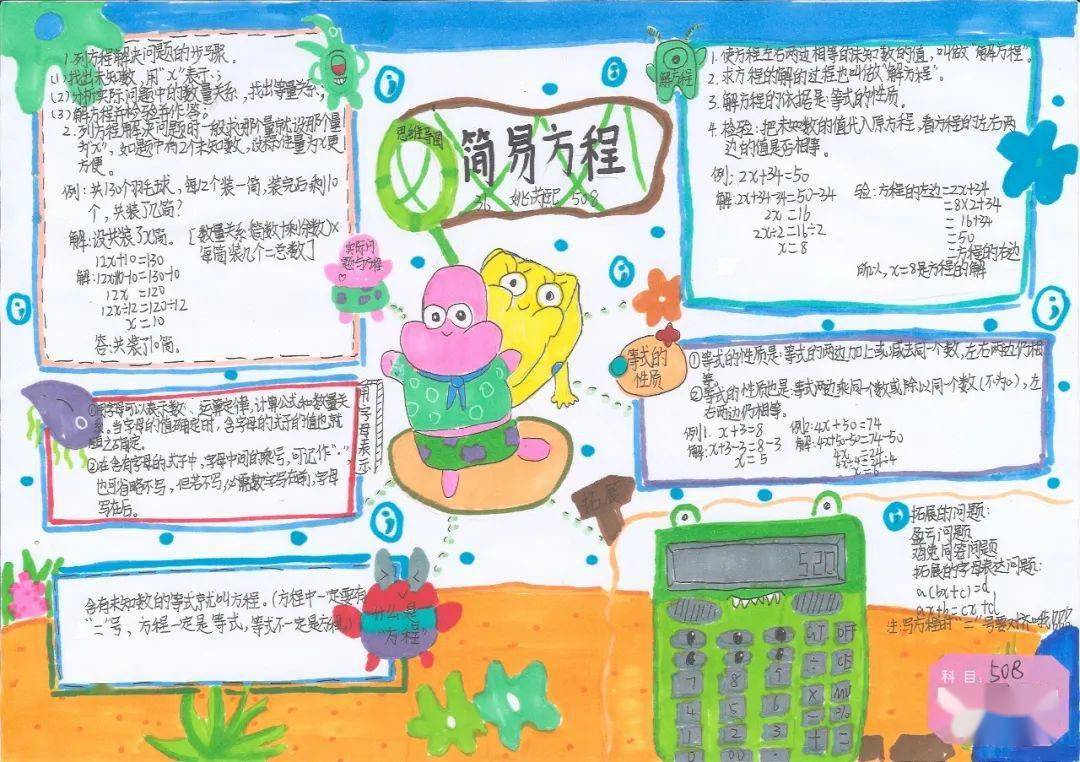 简易方程
思维导图
508
1.列方程解决问题的步骤
(1)找出未知数,用"x"表示;
(2)分析实际问题中的数量关系,找出等量关系,
(3)解方程并检验并作答。
2.列方程解决问题时一般求那个量就设那个量
为"x",如题中有2个未知数,设标准量为x更
方便。
例:共130个羽毛球,每12个装一筒,装完后剩10
个,共装了几筒?
解:设共装了x筒。
[数量关系:筒数+剩余数)×
每筒装几个=总数]
12x+10=130
解:12x+10-10=130-10
12x=120
12x÷12=120÷12
x=10
答:共装了10筒。
实际问
题与方程
解方程
1.使方程左右两边相等的未知数的值,叫做"解方程"。
2.求方程的解的过程也叫做"解方程";
3.解方程的依据是等式的性质。
4.检验:把未知数的值代入原方程,看方程的左右两
边的值是否相等。
例:2x+34=50
解:2x+34-34=50-34
2x=16
2x÷2=16÷2
x=8
验:方程的左边=2x+34
=8×2+34
=16+34
=50
=方程的右边
所以,x=8是方程的解
等式的
性质
①等式的性质是:等式的两边加上或减去同一个数,左右两边仍相
等。
②等式的性质也是:等式两边乘同一个数或除以同一个数(不为0),左
右两边仍相等。
例1. x+3=8
解:x+3-3=8-3
x=5
例2:4x+50=74
解:4x+50-50=74-50
4x=24
4x÷4=24÷4
x=6
用字母表示
①用字母可以表示数、运算定律,计算公式和数量关
系。当字母的值确定时,含字母的式子的值也就
随之确定。
②在含有字母的式子中,字母中间的乘号,可记作"·",
也可省略不写,但若不写,必需数字写在前,字母
写在后。
什么是
"方程"
含有未知数的等式就叫方程。(方程中一定要有
"="号,方程一定是等式,等式不一定是方程)
拓展
拓展的问题:
盈亏问题
拓展的字母表达问题:
a(bx+c)=d
ax+b=cx+d
注:写方程时"="号要对齐哦
520
GT OFF
÷ CE
7 8 9 × MU
4 5 6 - %
1 2 3 + =
0 00 .
科目: 508